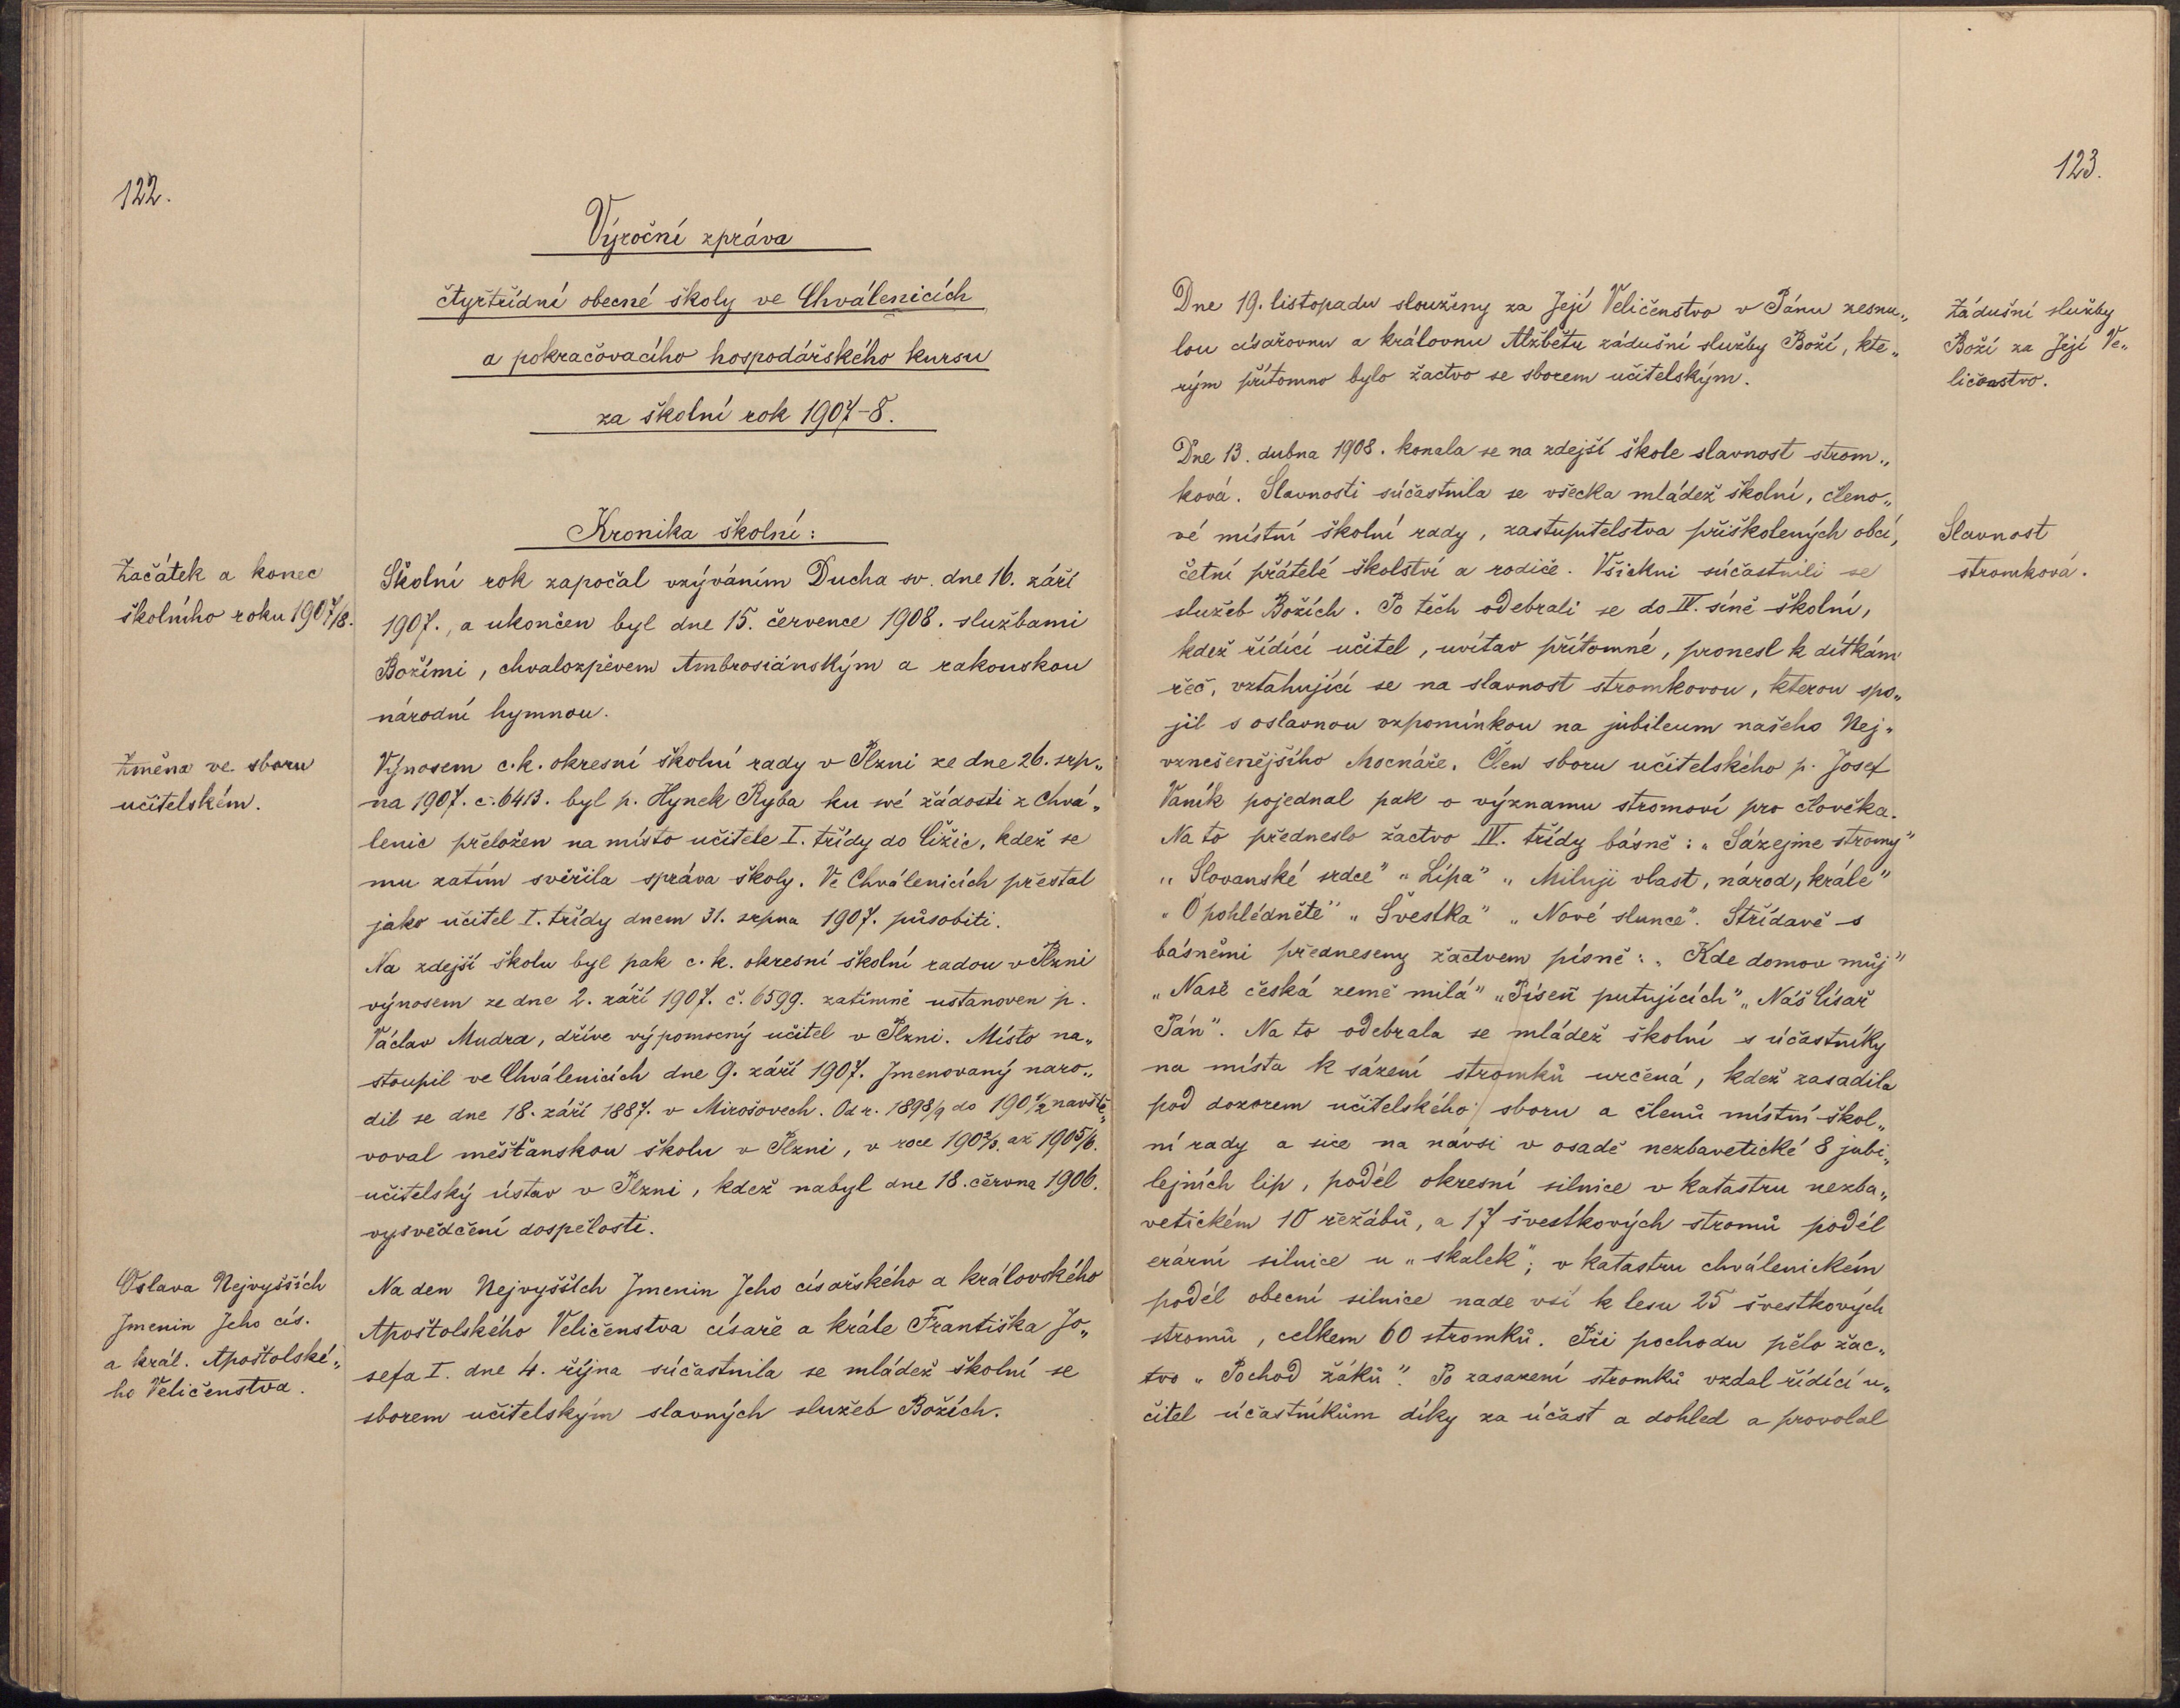 122.
Výroční zpráva
čtyřtřídní obecné školy ve Chválenicích
a pokračovacího hospodářského kursu
za školní rok 1907-8.
Kronika školní:
Začátek a konec
školního roku 1907/8.
Školní rok započal vzýváním Ducha sv. dne 16. září
1907., a ukončen byl dne 15. července 1908. službami
Božími, chvalozpěvem Ambrosiánským a rakouskou
národní hymnou.
Změna ve sboru
učitelském.
Výnosem c. k. okresní školní rady v Plzni ze dne 26. srp„
na 1907. č. 6413. byl p. Hynek Ryba ku své žádosti z Chvá„
lenic přeložen na místo učitele I. třídy do Čižic, kdež se
mu zatím svěřila správa školy. Ve Chválenicích přestal
jako učitel I. třídy dnem 31. srpna 1907. působiti.
Na zdejší školu byl pak c. k. okresní školní radou v Plzni
výnosem ze dne 2. září 1907. č. 6599. zatímně ustanoven p.
Václav Mudra, dříve výpomocný učitel v Plzni. Místo na„
stoupil ve Chválenicích dne 9. září 1907. Jmenovaný naro„
dil se dne 18. září 1887. v Mirošovech. Od r. 1898/9 do 1901/2 navště„
voval měšťanskou školu v Plzni, v roce 1902/3. až 1905/6.
učitelský ústav v Plzni, kdež nabyl dne 18. června 1906.
vysvědčení dospělosti.
Oslava Nejvyšších
Jmenin Jeho cís.
a král. Apoštolské„
ho Veličenstva.
Na den Nejvyšších Jmenin Jeho císařského a královského
Apoštolského Veličenstva císaře a krále Františka Jo„
sefa I. dne 4. října súčastnila se mládež školní se
sborem učitelským slavných služeb Božích.
123.
Dne 19. listopadu slouženy za Její Veličenstvo v Pánu zesnu„
lou císařovnu a královnu Alžbětu zádušní služby Boží, kte„
rým přítomno bylo žactvo se sborem učitelským.
Zádušní služby
Boží za Její Ve„
ličenstvo.
Dne 13. dubna 1908. konala se na zdejší škole slavnost strom„
ková. Slavnosti súčastnila se všecka mládež školní, členo„
vé místní školní rady, zastupitelstva přiškolených obcí,
četní přátelé školství a rodiče. Všickni súčastnili se
služeb Božích. Po těch odebrali se do IV. síně školní,
kdež řídící učitel, uvítav přítomné, pronesl k dítkám
řeč, vztahující se na slavnost stromkovou, kterou spo„
jil s oslavnou vzpomínkou na jubileum našeho Nej„
vznešenějšího Mocnáře. Člen sboru učitelského p. Josef
Vaník pojednal pak o významu stromoví pro člověka.
Na to předneslo žactvo IV. třídy básně: „Sázejme stromy"
„Slovanské srdce" „Lípa" „Miluji vlast, národ, krále"
„O pohlédněte" „Švestka" „Nové slunce". Střídavě s
básněmi předneseny žactvem písně: „Kde domov můj"
„Naše česká země milá" „Píseň putujících" „Náš Císař
Pán". Na to odebrala se mládež školní s účastníky
na místa k sázení stromků určená, kdež zasadila
pod dozorem učitelského sboru a členů místní škol„
ní rady a sice na návsi v osadě nezbavetické 8 jubi„
lejních lip, podél okresní silnice v katastru nezba„
vetickém 10 řežábů, a 17 švestkových stromů podél
erární silnice u „skalek"; v katastru chválenickém
podél obecní silnice nade vsí k lesu 25 švestkových
stromů, celkem 60 stromků. Při pochodu pělo žac„
tvo „Pochod žáků". Po zasazení stromků vzdal řídící u„
čitel účastníkům díky za účast a dohled a provolal
Slavnost
stromková.